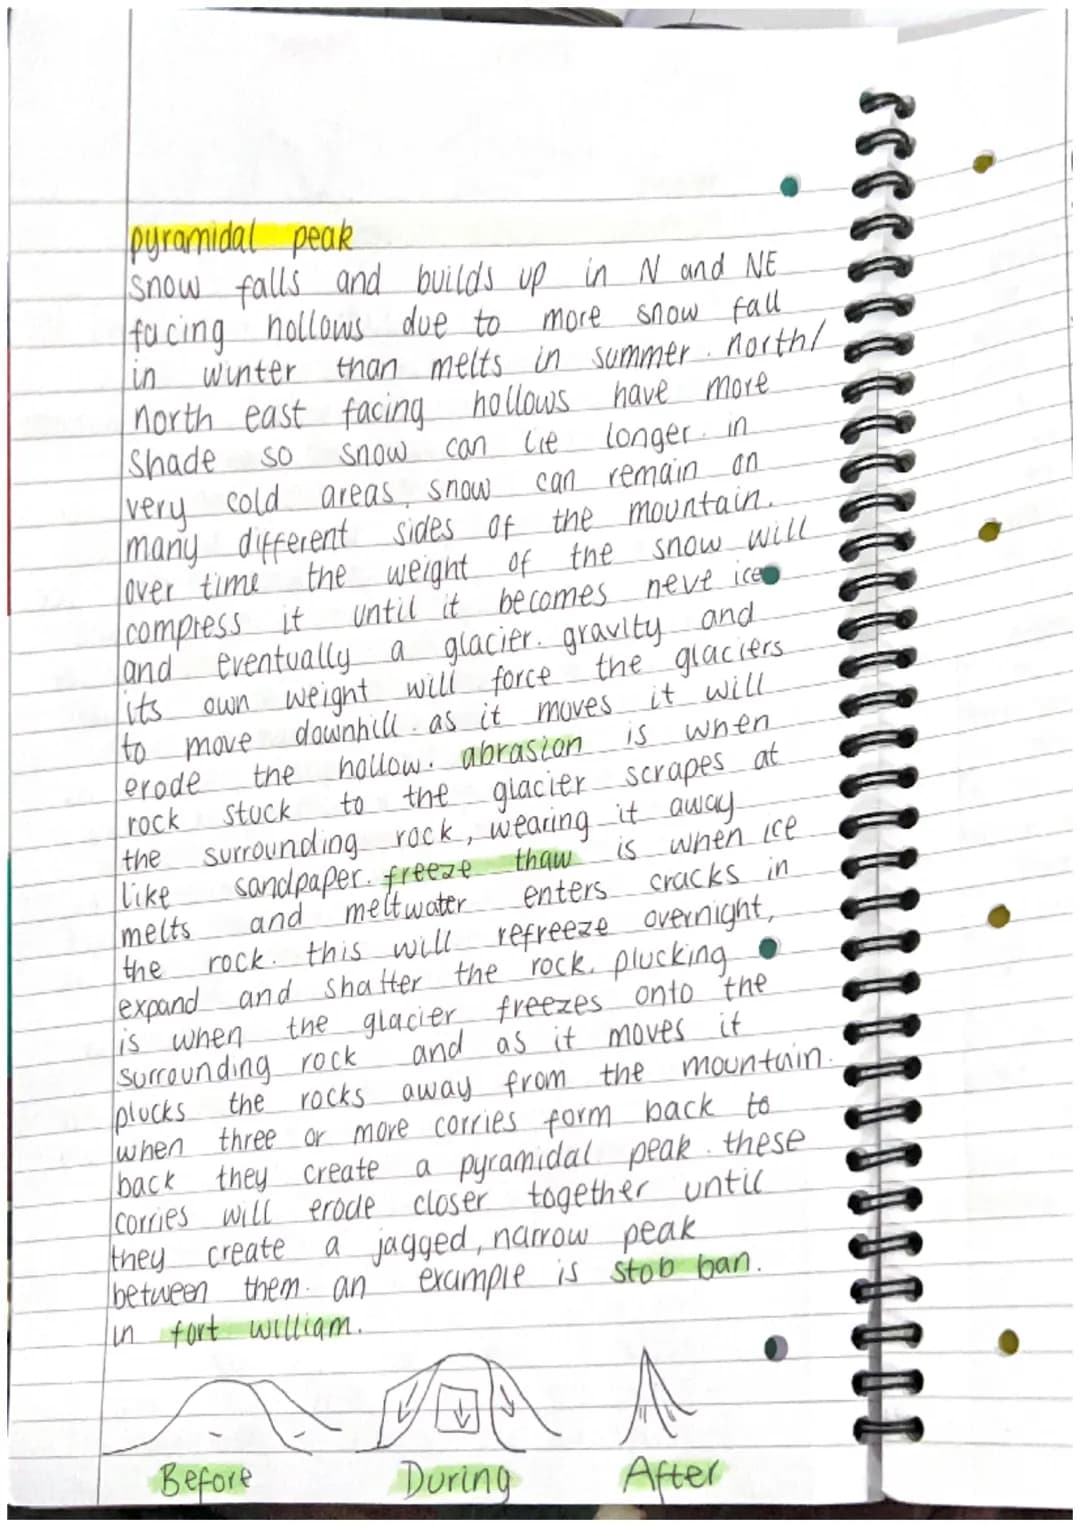 pyramidal peak
snow falls and builds up in N and NE
facing hollows due to more snow fall
in winter than melts in summer. north/
north east facing hollows have more
shade so snow can lie longer. in
very cold areas, snow can remain on
many different sides of the mountain.
over time the weight of the snow will
compress it until it becomes neve ice
and eventually a glacier. gravity and
its own weight will force the glaciers
to move downhill. as it moves it will
erode the hollow. abrasion is when
rock stuck to the glacier scrapes at
the surrounding rock, wearing it away
like sandpaper. freeze thaw is when ice
melts and meltwater enters cracks in
the rock. this will refreeze overnight,
expand and shatter the rock. plucking
is when the glacier freezes onto the
surrounding rock and as it moves it
plucks the rocks away from the mountain.
when three or more corries form back to
back they create a pyramidal peak. these
corries will erode closer together until
they create a jagged, narrow peak
between them. an example is stob ban.
in fort william.
Before During After